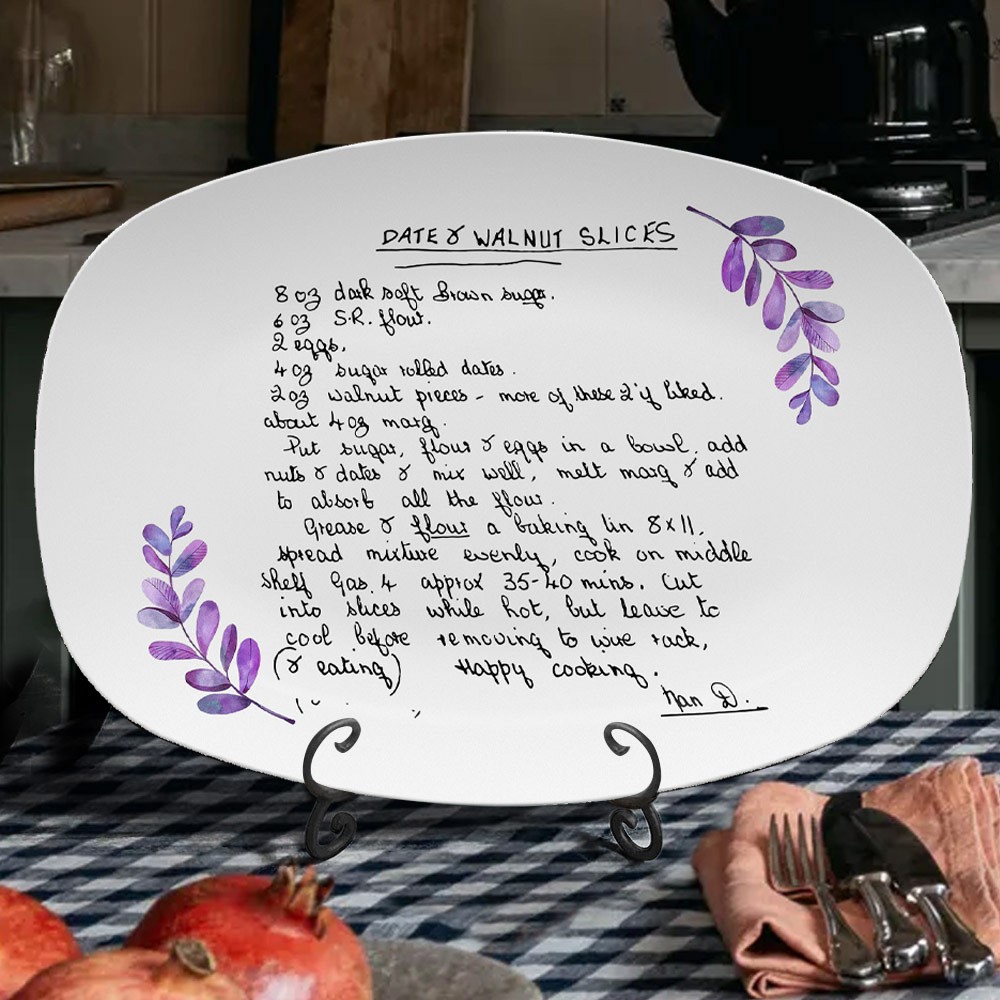 DATE & WALNUT SLICES
8 oz dark soft Brown sugar.
6 oz S.R. flour.
2 eggs,
4 oz sugar rolled dates.
2 oz walnut pieces - more of these 2 if liked.
about 4 oz marg.
Put sugar, flour & eggs in a bowl, add
nuts & dates & mix well, melt marg & add
to absorb all the flour.
Grease & flour a baking tin 8x11,
spread mixture evenly, cook on middle
shelf Gas 4 approx 35-40 mins. Cut
into slices while hot, but leave to
cool before removing to wire rack,
(& eating) Happy cooking.
Nan D.